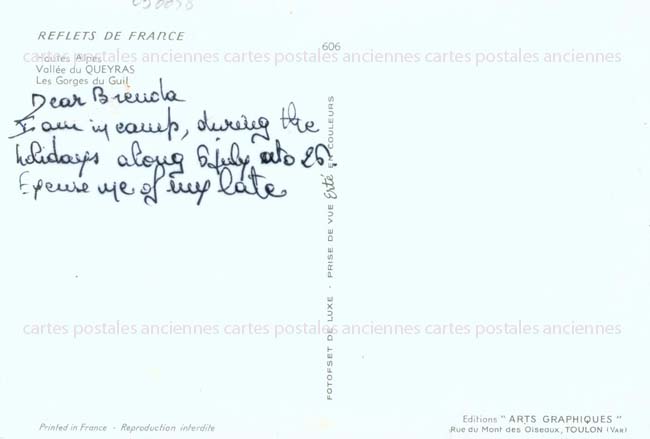 REFLETS DE FRANCE
606
cartes postales anciennes cartes postales anciennes cartes postales anciennes
Hautes Alpes
Vallée du QUEYRAS
Les Gorges du Guil
Dear Brenda
I am in camp, during the
holidays along 6 july to 26.
Excuse me of my late
FOTOFSET DE LUXE - PRISE DE VUE Erté EN COULEURS
cartes postales anciennes cartes postales anciennes cartes postales anciennes
Editions "ARTS GRAPHIQUES"
Rue du Mont des Oiseaux, TOULON (VAR)
Printed in France - Reproduction interdite